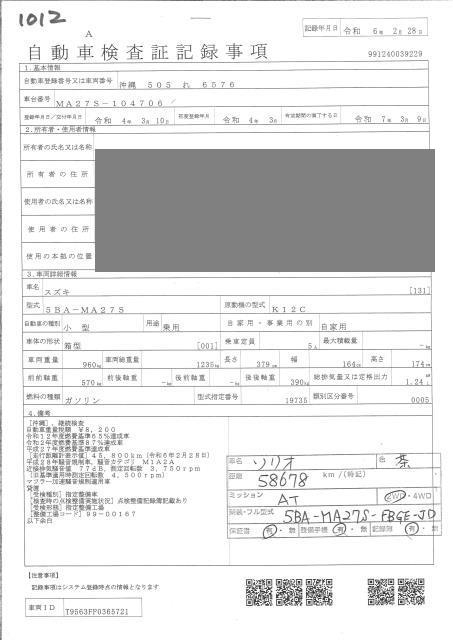 1012
A
自動車検査証記録事項
記録年月日 令和 6年 2月 28日
991240039229
1.基本情報
自動車登録番号又は車両番号 沖縄 505 れ 6576
車台番号 MA27S-104706 /
登録年月日/交付年月日 令和 4年 3月 10日 初度登録年月 令和 4年 3月 有効期間の満了する日 令和 7年 3月 9日
2.所有者・使用者情報
所有者の氏名又は名称
所有者の住所
使用者の氏名又は名称
使用者の住所
使用の本拠の位置
3.車両詳細情報
車名 スズキ [131]
型式 5BA-MA27S 原動機の型式 K12C
自動車の種別 小型 用途 乗用 自家用・事業用の別 自家用
車体の形状 箱型 [001] 乗車定員 5人 最大積載量 -kg
車両重量 960kg 車両総重量 1235kg 長さ 379cm 幅 164cm 高さ 174cm
前前軸重 570kg 前後軸重 -kg 後前軸重 -kg 後後軸重 390kg 総排気量又は定格出力 1.24L
燃料の種類 ガソリン 型式指定番号 19735 類別区分番号 0005
4.備考
[沖縄],継続検査
自動車重量税額 ¥8,200
令和12年度燃費基準65%達成車
令和2年度燃費基準87%達成車
平成27年度燃費基準達成車
[走行距離計表示値]45,800km(令和6年2月28日)
平成28年騒音規制車,騒音カテゴリ M1A2A
近接排気騒音値 77dB,測定回転数 3,750rpm
(旧基準適用時測定回転数 4,500rpm)
マフラー加速騒音規制適用車
[受検種別]指定整備車
[検査時の点検整備実施状況]点検整備記録簿記載あり
[受検形態]指定整備工場
[整備工場コード]99-00167
以下余白
車名 ソリオ 色 茶
距離 58678 km/(特記)
ミッション AT 2WD・4WD
類装・フル型式 5BA-MA27S-FBGE-JD
保証書 有・無 整備手帳 有・無 記録簿 有・無
【注意事項】
記録事項はシステム登録時点の情報となります
車両ID T9563FF0365721